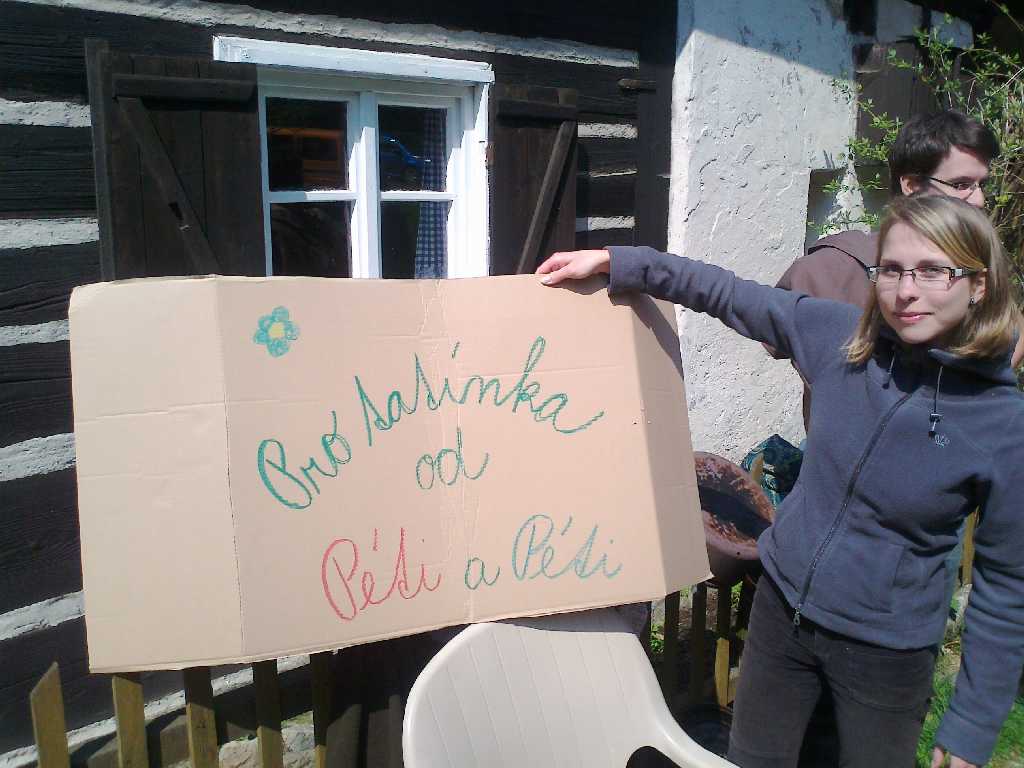 Pro tatínka
od
Péti a Péti